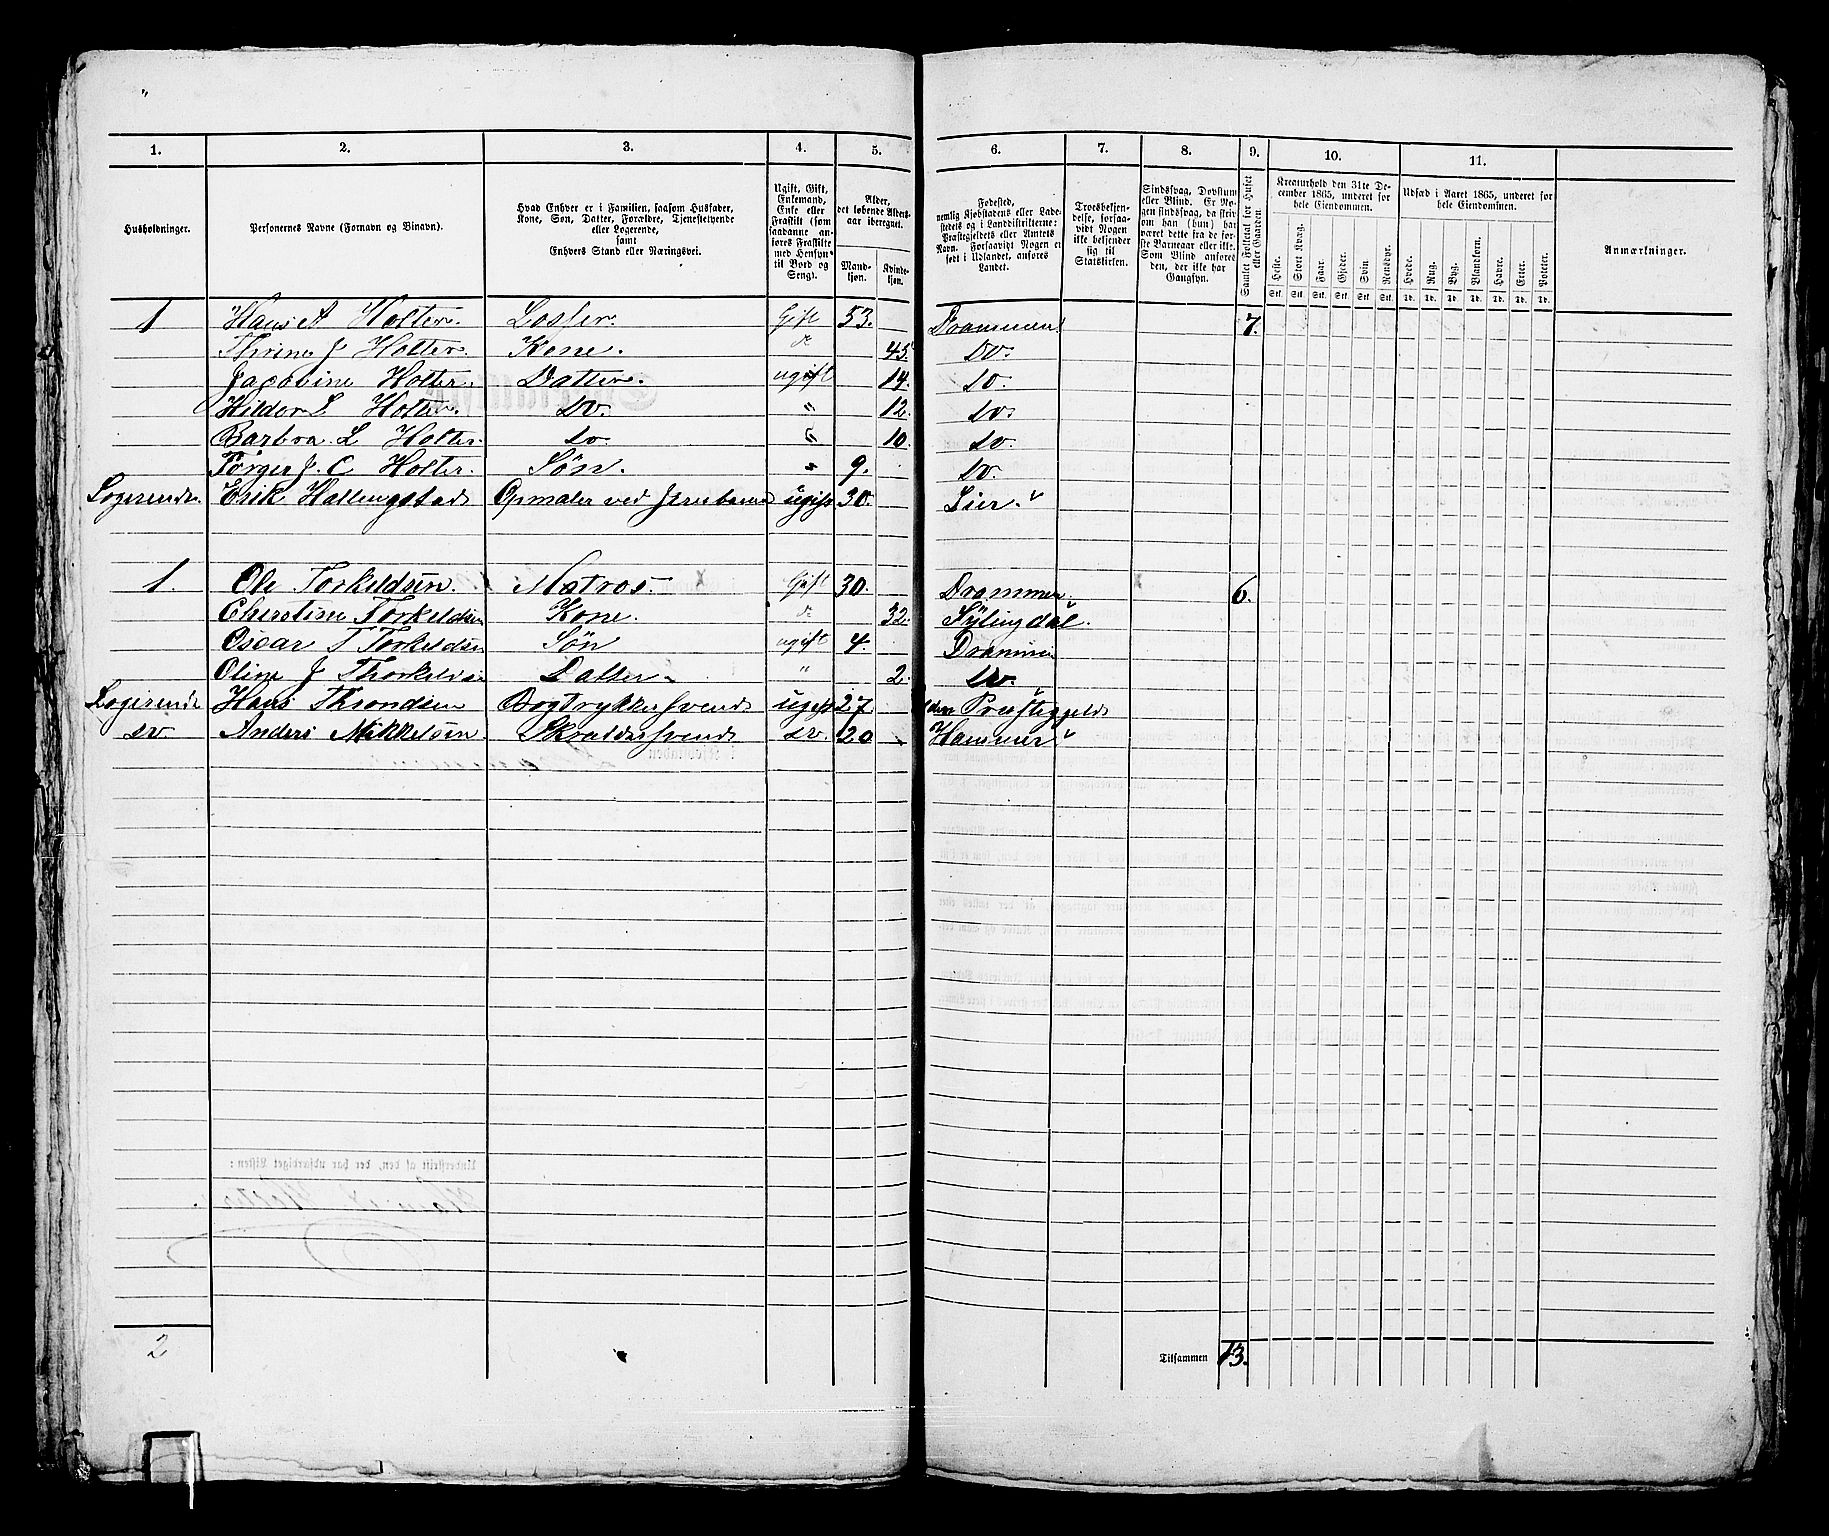 1. 2. 3. 4. 5. 6. 7. 8. 9. 10. 11.
Husholdninger.
Personernes Navne (Fornavn og Binavn).
Hvad Enhver er i Familien, saasom Husfader, Kone, Søn, Datter, Forældre, Tjenestetyende eller Logerende, samt Enhvers Stand eller Næringsvei.
Ugift, Gift, Enkemand, Enke eller Fraskilt (saasaadanne anføres Fraskilte med Hensyn til Bord og Seng).
Alder, det løbende Aldersaar iberegnet.
Mandkjøn. Kvindekjøn.
Fødested, nemlig Kjøbstadens eller Ladestedets og i Landdistrikterne: Præstegjeldets eller Amtets Navn. Forsaavidt Nogen er født i Udlandet, anføres Landet.
Troesbekjendelse, forsaavidt Nogen ikke bekjender sig til Statskirken.
Sindssvag, Døvstum eller Blind. Er Nogen sindssvag, da skriv om han (hun) har været dette fra de første Barneaar eller ikke. Som Blind anføres den, der ikke har Gangsyn.
Samlet Folketal for Huset eller Gaarden.
Kreaturhold den 31te December 1865, underet for hele Eiendommen.
Heste. Stort Kvæg. Faar. Gjeder. Svin. Rensdyr.
Stk. Stk. Stk. Stk. Stk. Stk.
Udsæd i Aaret 1865, underet for hele Eiendommen.
Hvede. Rug. Byg. Blandkorn. Havre. Erter. Poteter.
Td. Td. Td. Td. Td. Td. Td.
Anmærkninger.
1 Hans A Holter. Losser. Gift 53. Drammen 7.
Thrine J Holter. Kone. d 45. Do.
Jacobine Holter. Datter. ugift 14. do.
Hilda L Holter. do. " 12. do.
Barbra L Holter. do. " 10. do.
Torger J. C Holter. Søn. " 9. do.
Logerende Erik Hallingstad Opmaler ved ugift 30. Lier.
1. Ole Torkeldsen. Matros. x Gift 30. Drammen. x 6.
Christine Torkeldsen Kone. d 32. Sylingdal.
Oscar T Torkeldsen Søn ugift 4. Drammen
Oline J Thorkeldsen Datter " 2. do.
Logerende Hans Throndsen Bogtrykkersvend ugift 27. Præstegjeld
do Anders Mikkelsen Skræddersvend do. 20 Hammer
2 Tilsammen 13.